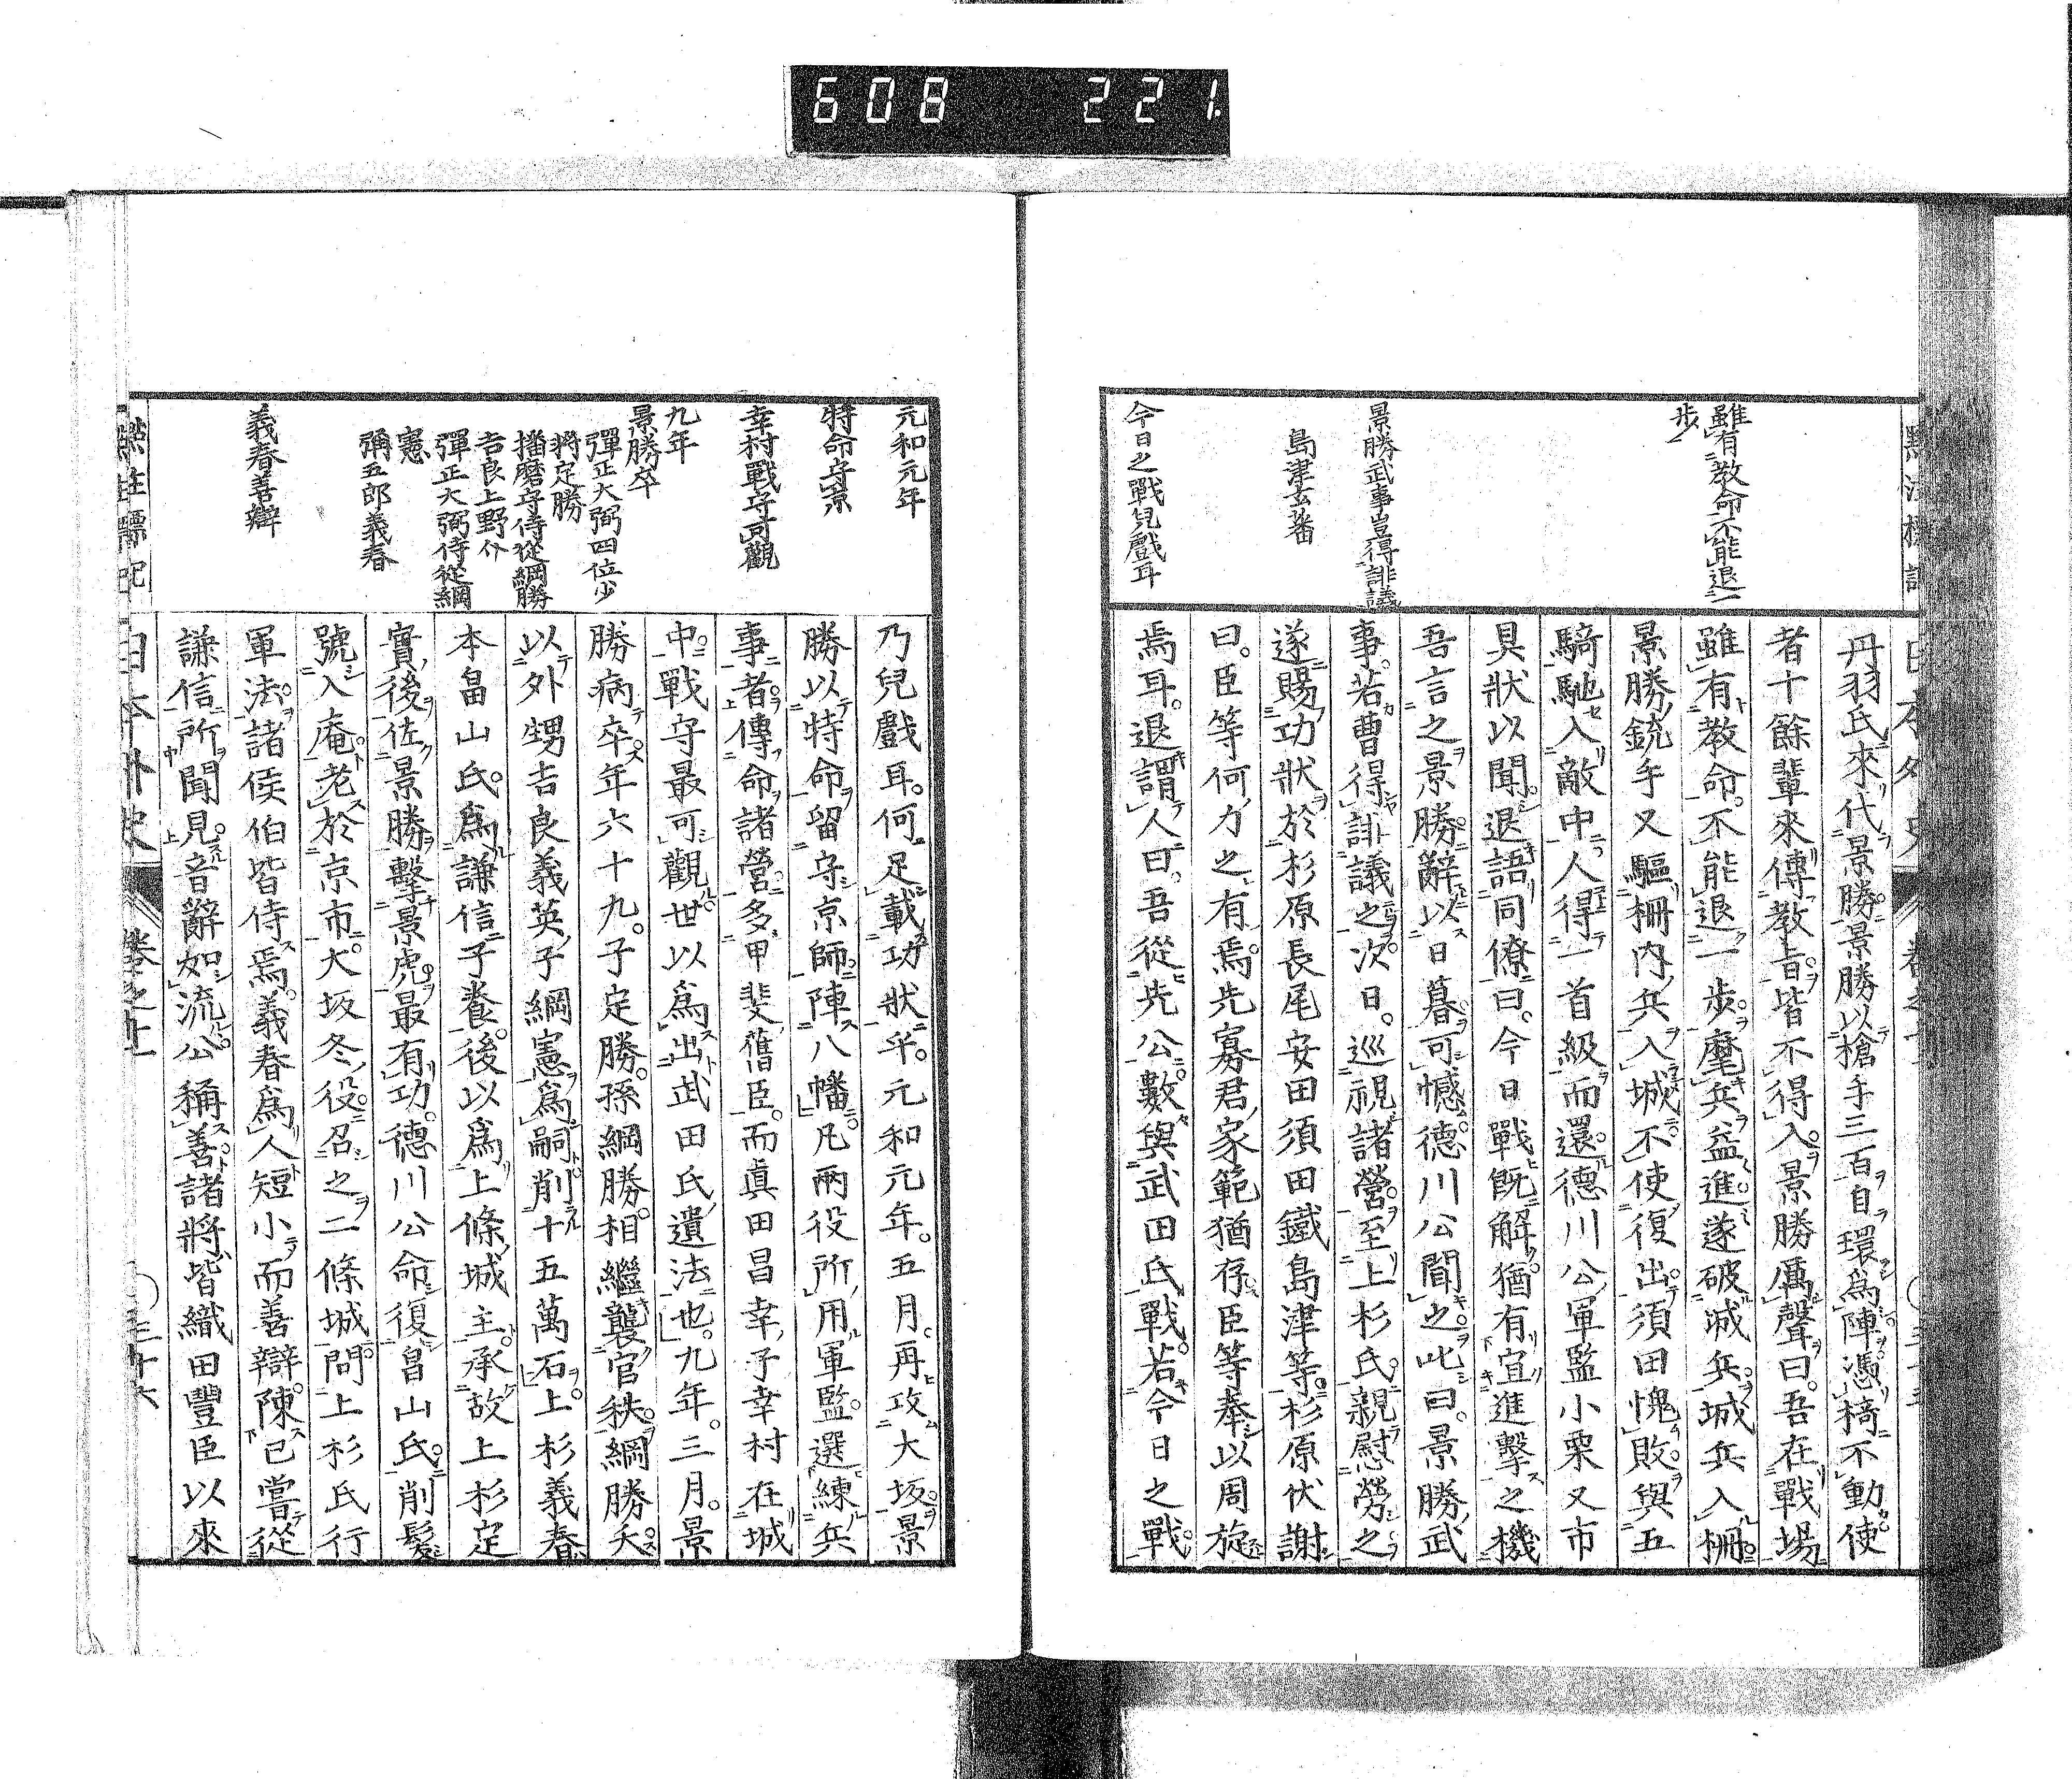 608 221
雖有教命不能退一
步
景勝武事豈得誹議
島津玄蕃
今日之戰兒戲耳
丹羽氏來代景勝景勝以槍手三百自環爲陣憑椅不動使
者十餘輩來傳教旨皆不得入景勝厲聲曰吾在戰場
雖有教命不能退一步麾兵益進遂破城兵城兵入柵
景勝銃手又驅柵内兵入城不使復出須田愧敗與五
騎馳入敵中人得一首級而還德川公軍監小栗又市
具狀以聞退語同僚曰今日戰既解猶有宜進擊之機
吾言之景勝辭以日暮可憾德川公聞之叱曰景勝武
事若曹得誹議之次日巡視諸營至上杉氏親慰勞之
遂賜功狀於杉原長尾安田須田鐵島津等杉原伏謝
曰臣等何力之有焉先寡君家範猶存臣等奉以周旋
焉耳退謂人曰吾從先公數與武田氏戰若今日之戰
元和元年
特命守京
幸村戰守可觀
九年
景勝卒
彈正大弼四位少
將定勝
播磨守侍從綱勝
吉良上野介
彈正大弼侍從綱
憲
彌五郎義春
義春善辯
乃兒戲耳何足載功狀乎元和元年五月再攻大坂景
勝以特命留守京師陣八幡凡兩役所用軍監選練兵
事者傳命諸營多甲斐舊臣而眞田昌幸子幸村在城
中戰守最可觀世以爲出武田氏遺法也九年三月景
勝病卒年六十九子定勝孫綱勝相繼襲官秩綱勝夭
以外甥吉良義英子綱憲爲嗣削十五萬石上杉義春
本畠山氏爲謙信子養後以爲上條城主承故上杉定
實後佐景勝擊景虎最有功德川公命復畠山氏削髮
號入庵老於京市大坂冬役召之二條城問上杉氏行
軍法諸侯伯皆侍焉義春爲人短小而善辯陳己嘗從
謙信所聞見音辭如流公稱善諸將皆織田豐臣以來
日本外史 卷之十一 三十六